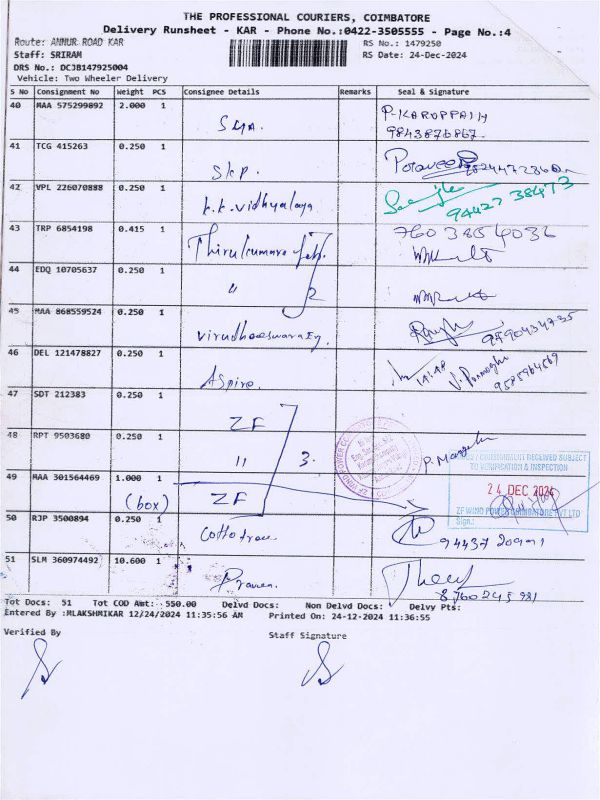 THE PROFESSIONAL COURIERS, COIMBATORE
Delivery Runsheet - KAR - Phone No.:0422-3505555 - Page No.:4
Route: ANNUR ROAD KAR RS No.: 1479250
Staff: SRIRAM RS Date: 24-Dec-2024
DRS No.: DCJB147925004
Vehicle: Two Wheeler Delivery
S No Consignment No Weight PCS Consignee Details Remarks Seal & Signature
40 MAA 575299892 2.000 1 P. KARUPPAIH
9843876867
41 TCG 415263 0.250 1 SKP.
42 VPL 226070888 0.250 1 K.K. Vidhyalaya 94427 38473
43 TRP 6854198 0.415 1 Thirukumara 760 3854036
44 EDQ 10705637 0.250 1 "
45 MAA 868559524 0.250 1
46 DEL 121478827 0.250 1 Aspire.
47 SDT 212383 0.250 1 ZF
48 RPT 9503680 0.250 1 " 3.
49 MAA 301564469 1.000 1 ZF
(box)
CONSIGNMENT RECEIVED SUBJECT
TO VERIFICATION & INSPECTION
24 DEC 2024
ZF WIND POWER COIMBATORE PVT LTD
Sign.:
50 RJP 3500894 0.250 1
51 SLM 360974492 10.600 1 Praveen.
Tot Docs: 51 Tot COD Amt: 550.00 Delvd Docs: Non Delvd Docs: Delvy Pts:
Entered By :MLAKSHMIKAR 12/24/2024 11:35:56 AM Printed On: 24-12-2024 11:36:55
Verified By Staff Signature